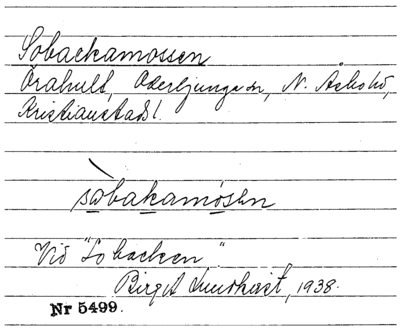 Sobackamossen
Örahult, Oderljunga sn, N. Åsbo hd,
Kristianstads l.
sobakamosen
Vid "Sobacken".
Birgit Lundkvist, 1938.
Nr 5499.